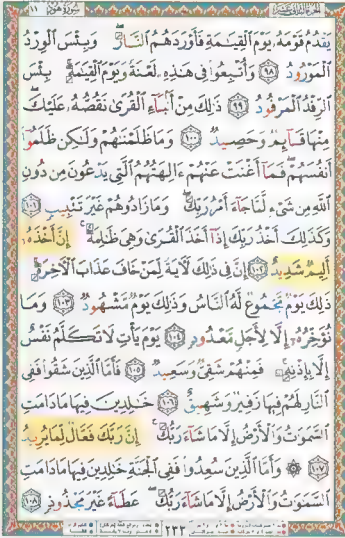 سورة هود ١١
يَقْدُمُ قَوْمَهُۥ يَوْمَ ٱلْقِيَٰمَةِ فَأَوْرَدَهُمُ ٱلنَّارَ ۖ وَبِئْسَ ٱلْوِرْدُ
ٱلْمَوْرُودُ ٩٨ وَأُتْبِعُوا۟ فِى هَٰذِهِۦ لَعْنَةً وَيَوْمَ ٱلْقِيَٰمَةِ ۚ بِئْسَ
ٱلرِّفْدُ ٱلْمَرْفُودُ ٩٩ ذَٰلِكَ مِنْ أَنۢبَآءِ ٱلْقُرَىٰ نَقُصُّهُۥ عَلَيْكَ ۖ
مِنْهَا قَآئِمٌ وَحَصِيدٌ ١٠٠ وَمَا ظَلَمْنَٰهُمْ وَلَٰكِن ظَلَمُوٓا۟
أَنفُسَهُمْ ۖ فَمَآ أَغْنَتْ عَنْهُمْ ءَالِهَتُهُمُ ٱلَّتِى يَدْعُونَ مِن دُونِ
ٱللَّهِ مِن شَىْءٍ لَّمَّا جَآءَ أَمْرُ رَبِّكَ ۖ وَمَا زَادُوهُمْ غَيْرَ تَتْبِيبٍ ١٠١
وَكَذَٰلِكَ أَخْذُ رَبِّكَ إِذَآ أَخَذَ ٱلْقُرَىٰ وَهِىَ ظَٰلِمَةٌ ۚ إِنَّ أَخْذَهُۥٓ
أَلِيمٌ شَدِيدٌ ١٠٢ إِنَّ فِى ذَٰلِكَ لَءَايَةً لِّمَنْ خَافَ عَذَابَ ٱلْءَاخِرَةِ ۚ
ذَٰلِكَ يَوْمٌ مَّجْمُوعٌ لَّهُ ٱلنَّاسُ وَذَٰلِكَ يَوْمٌ مَّشْهُودٌ ١٠٣ وَمَا
نُؤَخِّرُهُۥٓ إِلَّا لِأَجَلٍ مَّعْدُودٍ ١٠٤ يَوْمَ يَأْتِ لَا تَكَلَّمُ نَفْسٌ
إِلَّا بِإِذْنِهِۦ ۚ فَمِنْهُمْ شَقِىٌّ وَسَعِيدٌ ١٠٥ فَأَمَّا ٱلَّذِينَ شَقُوا۟ فَفِى
ٱلنَّارِ لَهُمْ فِيهَا زَفِيرٌ وَشَهِيقٌ ١٠٦ خَٰلِدِينَ فِيهَا مَا دَامَتِ
ٱلسَّمَٰوَٰتُ وَٱلْأَرْضُ إِلَّا مَا شَآءَ رَبُّكَ ۚ إِنَّ رَبَّكَ فَعَّالٌ لِّمَا يُرِيدُ
١٠٧ ۞ وَأَمَّا ٱلَّذِينَ سُعِدُوا۟ فَفِى ٱلْجَنَّةِ خَٰلِدِينَ فِيهَا مَا دَامَتِ
ٱلسَّمَٰوَٰتُ وَٱلْأَرْضُ إِلَّا مَا شَآءَ رَبُّكَ ۖ عَطَآءً غَيْرَ مَجْذُوذٍ ١٠٨
٢٣٣